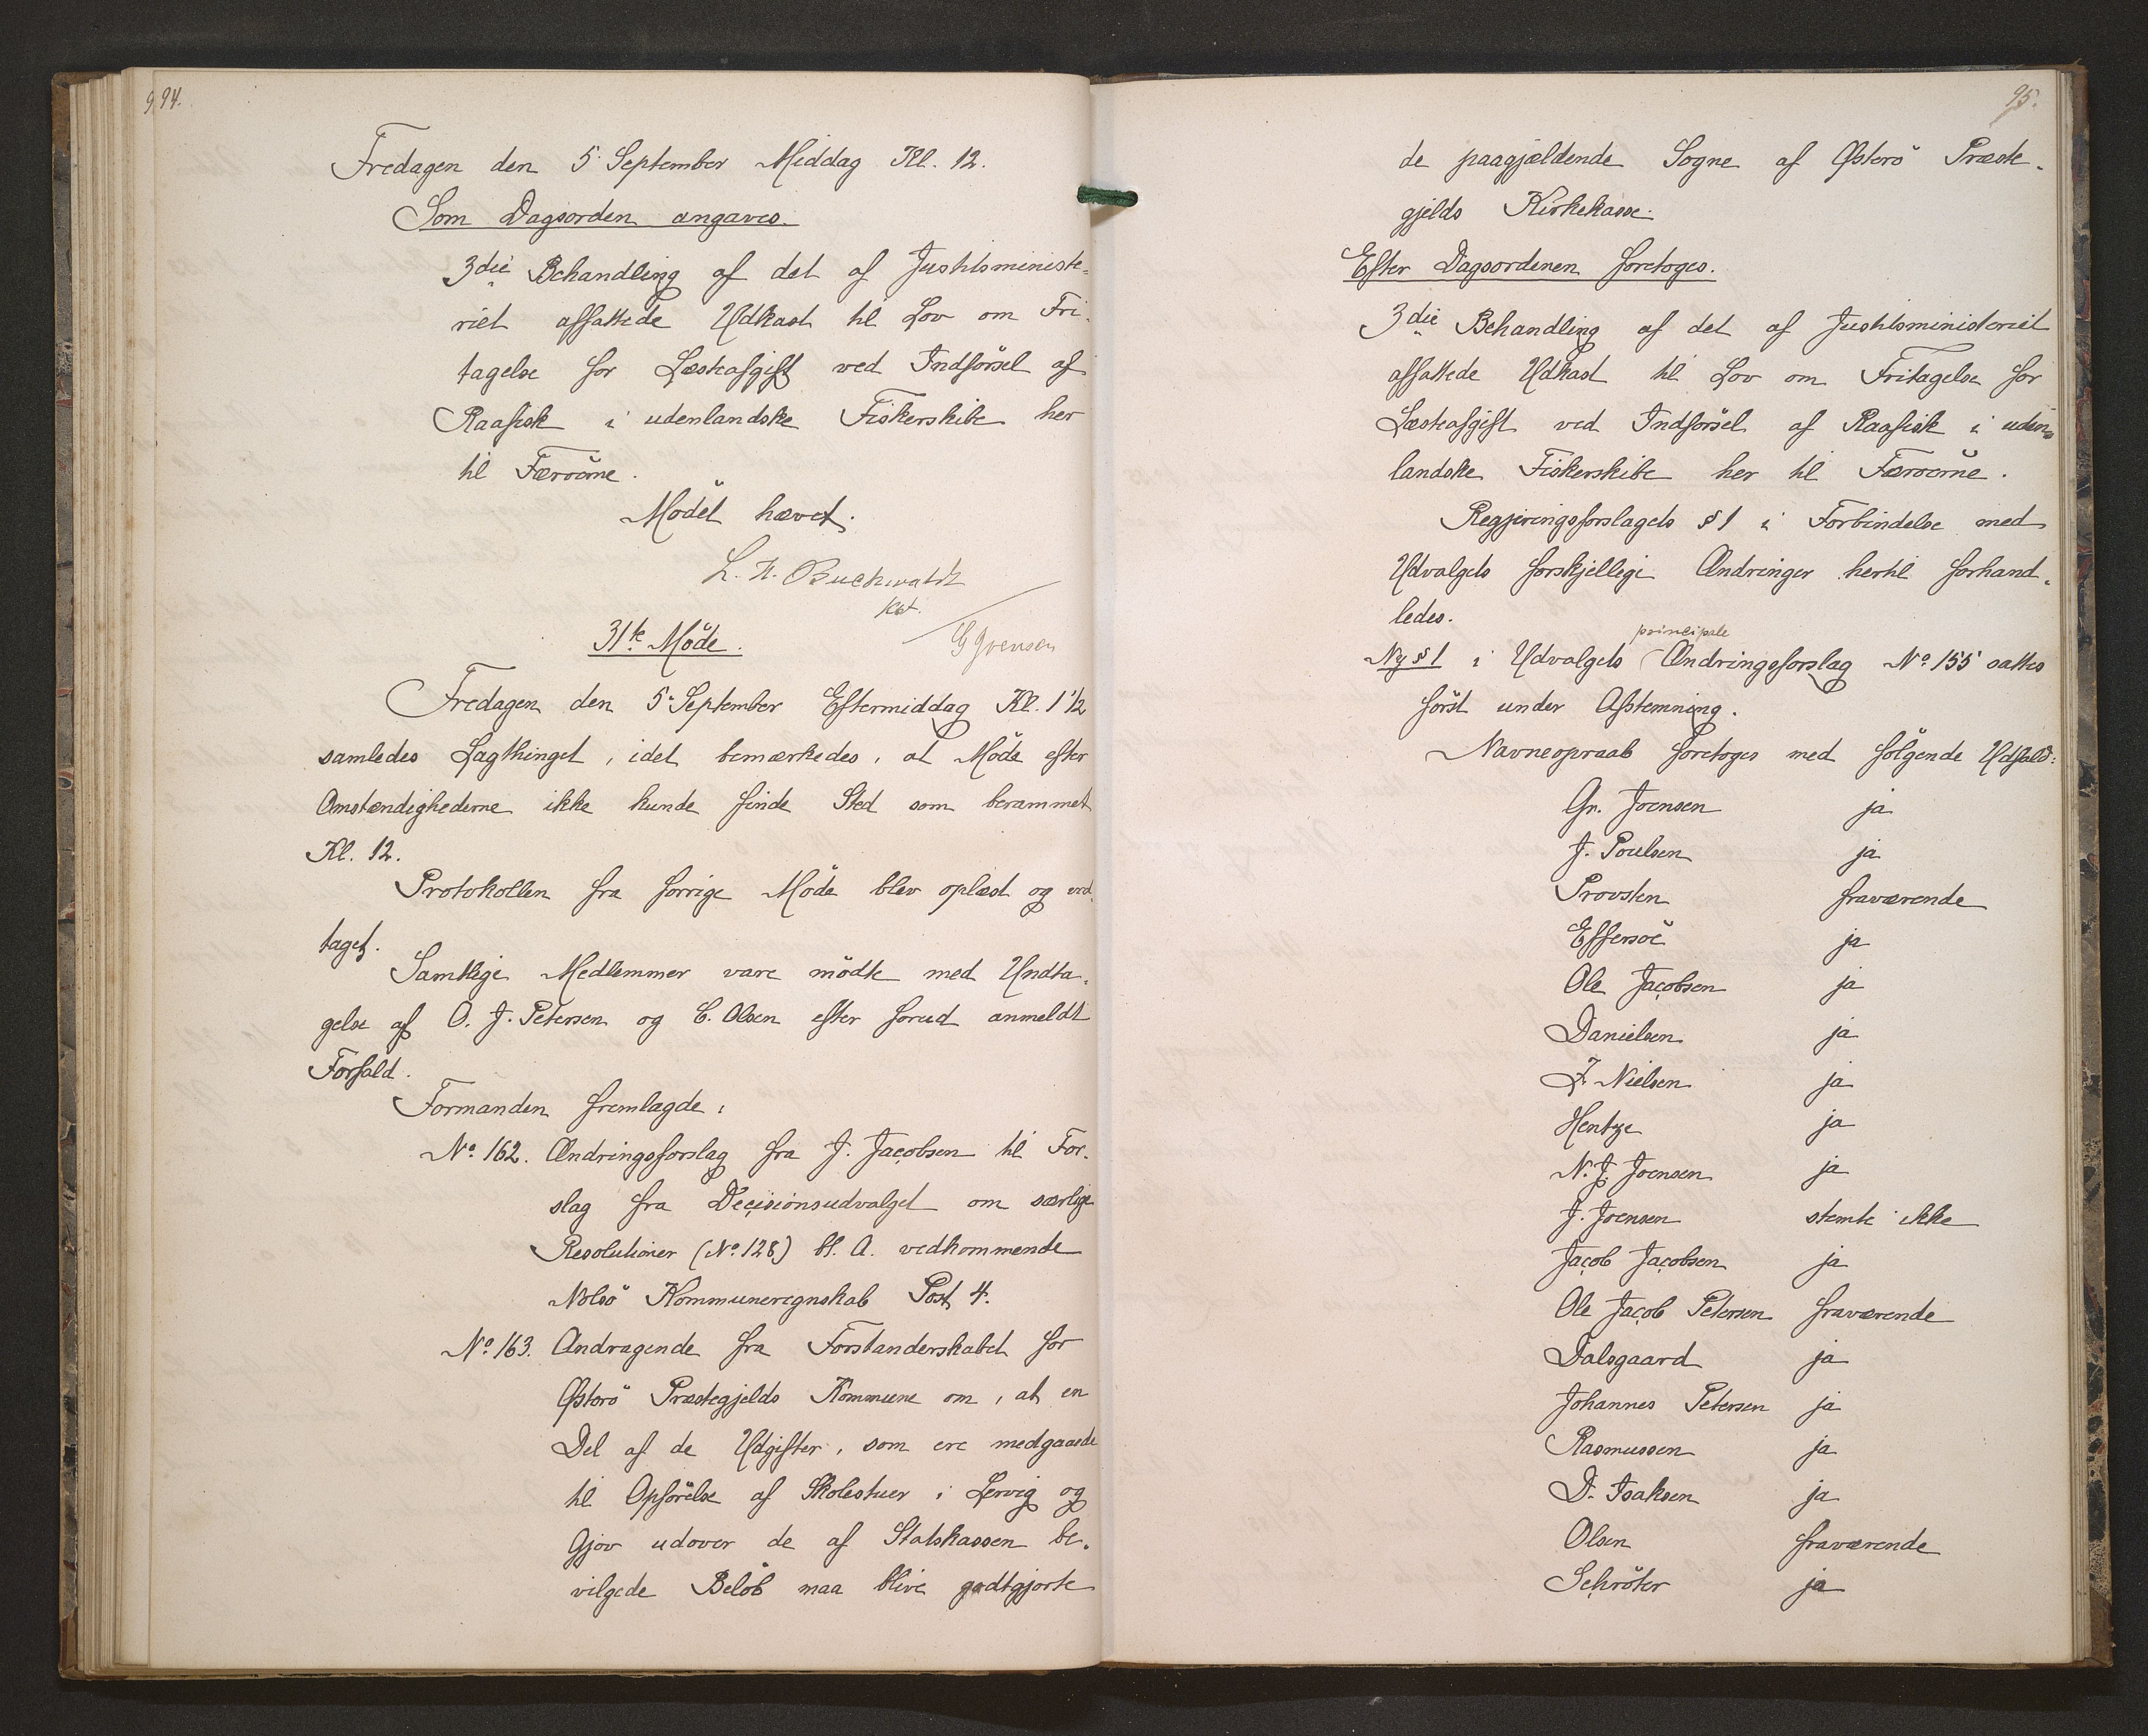 94.
Fredagen den 5 September Middag Kl. 12.
Som Dagsorden angaves.
3die Behandling af det af Justitsministe-
riet affattede Udkast til Lov om Fri-
tagelse for Læsteafgift ved Indförsel af
Raafisk i udenlandske Fiskerskibe her
til Færöerne.
Mödet hævet.
L. H. Buchwaldt
kst.
G Joensen
31te Möde.
Fredagen den 5 September Eftermiddag Kl. 1 1/2
samledes Lagthinget, idet bemærkedes, at Möde efter
Omstændighederne ikke kunde finde Sted som berammet
Kl. 12.
Protokollen fra forrige Möde blev oplæst og ved-
taget.
Samtlige Medlemmer vare mödte med Undta-
gelse af O. J. Petersen og C. Olsen efter forud anmeldt
Forfald.
Formanden fremlagde:
No. 162. Ændringsforslag fra J. Jacobsen til For-
slag fra Decisionsudvalget om særlige
Resolutioner (No. 128) bl. A. vedkommende
Nolsö Kommuneregnskab Post 4.
No. 163. Andragende fra Forstanderskabet for
Østerö Præstegjelds Kommune om, at en
Del af de Udgifter, som ere medgaaede
til Opförelse af Skolestuer i Lervig og
Gjov udover de af Statskassen be-
vilgede Belöb maa blive godtgjorte
95.
de paagjældende Sogne af Østerö Præste-
gjelds Kirkekasse.
Efter Dagsordenen foretoges.
3die Behandling af det af Justitsministeriet
affattede Udkast til Lov om Fritagelse for
Læsteafgift ved Indförsel af Raafisk i uden-
landske Fiskerskibe her til Færöerne.
Regjeringsforslagets § 1 i Forbindelse med
Udvalgets forskjellige Ændringer hertil forhand-
ledes.
principale
Ny § 1 i Udvalgets Ændringsforslag No. 155 sattes
först under Afstemning.
Navneopraab foretoges med fölgende Udfald:
Gr. Joensen ja
J. Poulsen ja
Provsten fraværende
Effersöe ja
Ole Jacobsen ja
Danielsen ja
Z. Nielsen ja
Hentze ja
N. J. Joensen ja
J. Joensen stemte ikke
Jacob Jacobsen ja
Ole Jacob Petersen fraværende
Dalsgaard ja
Johannes Petersen ja
Rasmussen ja
D. Isaksen ja
Olsen fraværende
Schröter ja